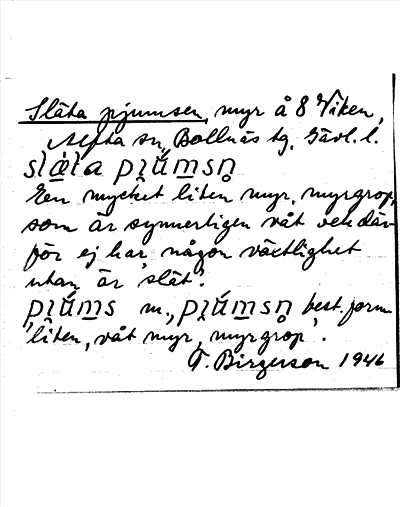 Släta pjumsen, myr å 8 Viken,
Alfta sn, Bollnäs tg, Gävl. l.
Een mycket liten myr, myrgrop,
som är synnerligen våt och där-
för ej har någon växtlighet
utan är 'slät'.
m., best. form
'liten, våt myr, myrgrop'.
F. Birgerson 1946